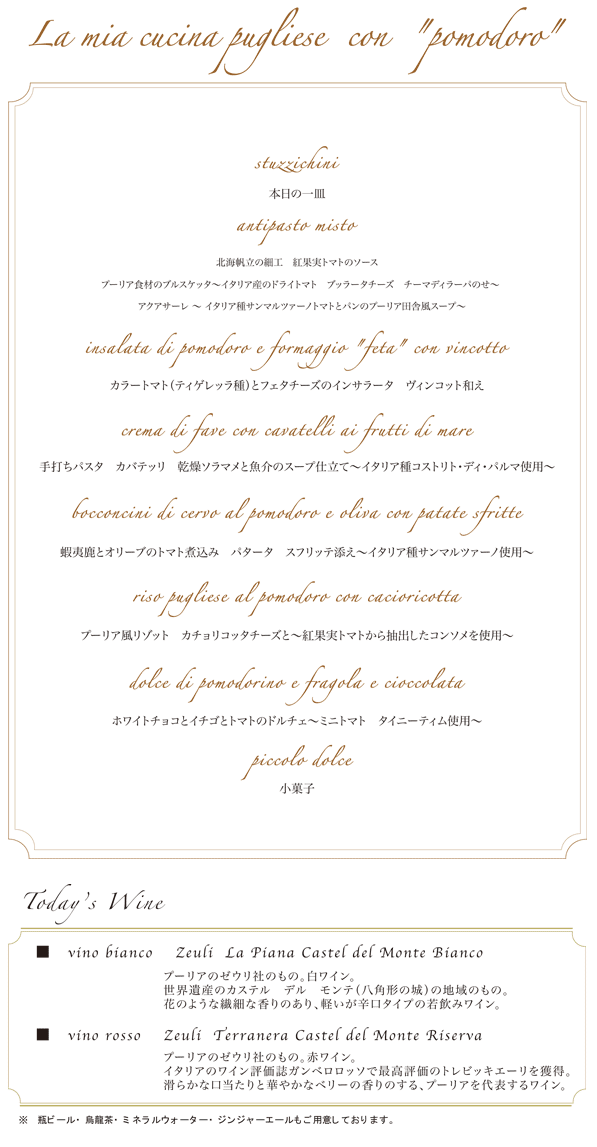 La mia cucina pugliese con "pomodoro"
stuzzichini
本日の一皿
antipasto misto
北海帆立の細工　紅果実トマトのソース
プーリア食材のブルスケッタ～イタリア産のドライトマト　ブッラータチーズ　チーマディラーパのせ～
アクアサーレ ～ イタリア種サンマルツァーノトマトとパンのプーリア田舎風スープ～
insalata di pomodoro e formaggio "feta" con vincotto
カラートマト(ティゲレッラ種)とフェタチーズのインサラータ　ヴィンコット和え
crema di fave con cavatelli ai frutti di mare
手打ちパスタ　カバテッリ　乾燥ソラマメと魚介のスープ仕立て～イタリア種コストリト・ディ・パルマ使用～
bocconcini di cervo al pomodoro e oliva con patate sfritte
蝦夷鹿とオリーブのトマト煮込み　パタータ　スフリッテ添え～イタリア種サンマルツァーノ使用～
riso pugliese al pomodoro con cacioricotta
プーリア風リゾット　カチョリコッタチーズと～紅果実トマトから抽出したコンソメを使用～
dolce di pomodorino e fragola e cioccolata
ホワイトチョコとイチゴとトマトのドルチェ～ミニトマト　タイニーティム使用～
piccolo dolce
小菓子
Today's Wine
■ vino bianco Zeuli La Piana Castel del Monte Bianco
プーリアのゼウリ社のもの。白ワイン。
世界遺産のカステル　デル　モンテ(八角形の城)の地域のもの。
花のような繊細な香りのあり、軽いが辛口タイプの若飲みワイン。
■ vino rosso Zeuli Terranera Castel del Monte Riserva
プーリアのゼウリ社のもの。赤ワイン。
イタリアのワイン評価誌ガンベロロッソで最高評価のトレビッキエーリを獲得。
滑らかな口当たりと華やかなベリーの香りのする、プーリアを代表するワイン。
※　瓶ビール・ 烏龍茶・ ミネラルウォーター・ ジンジャーエールもご用意しております。